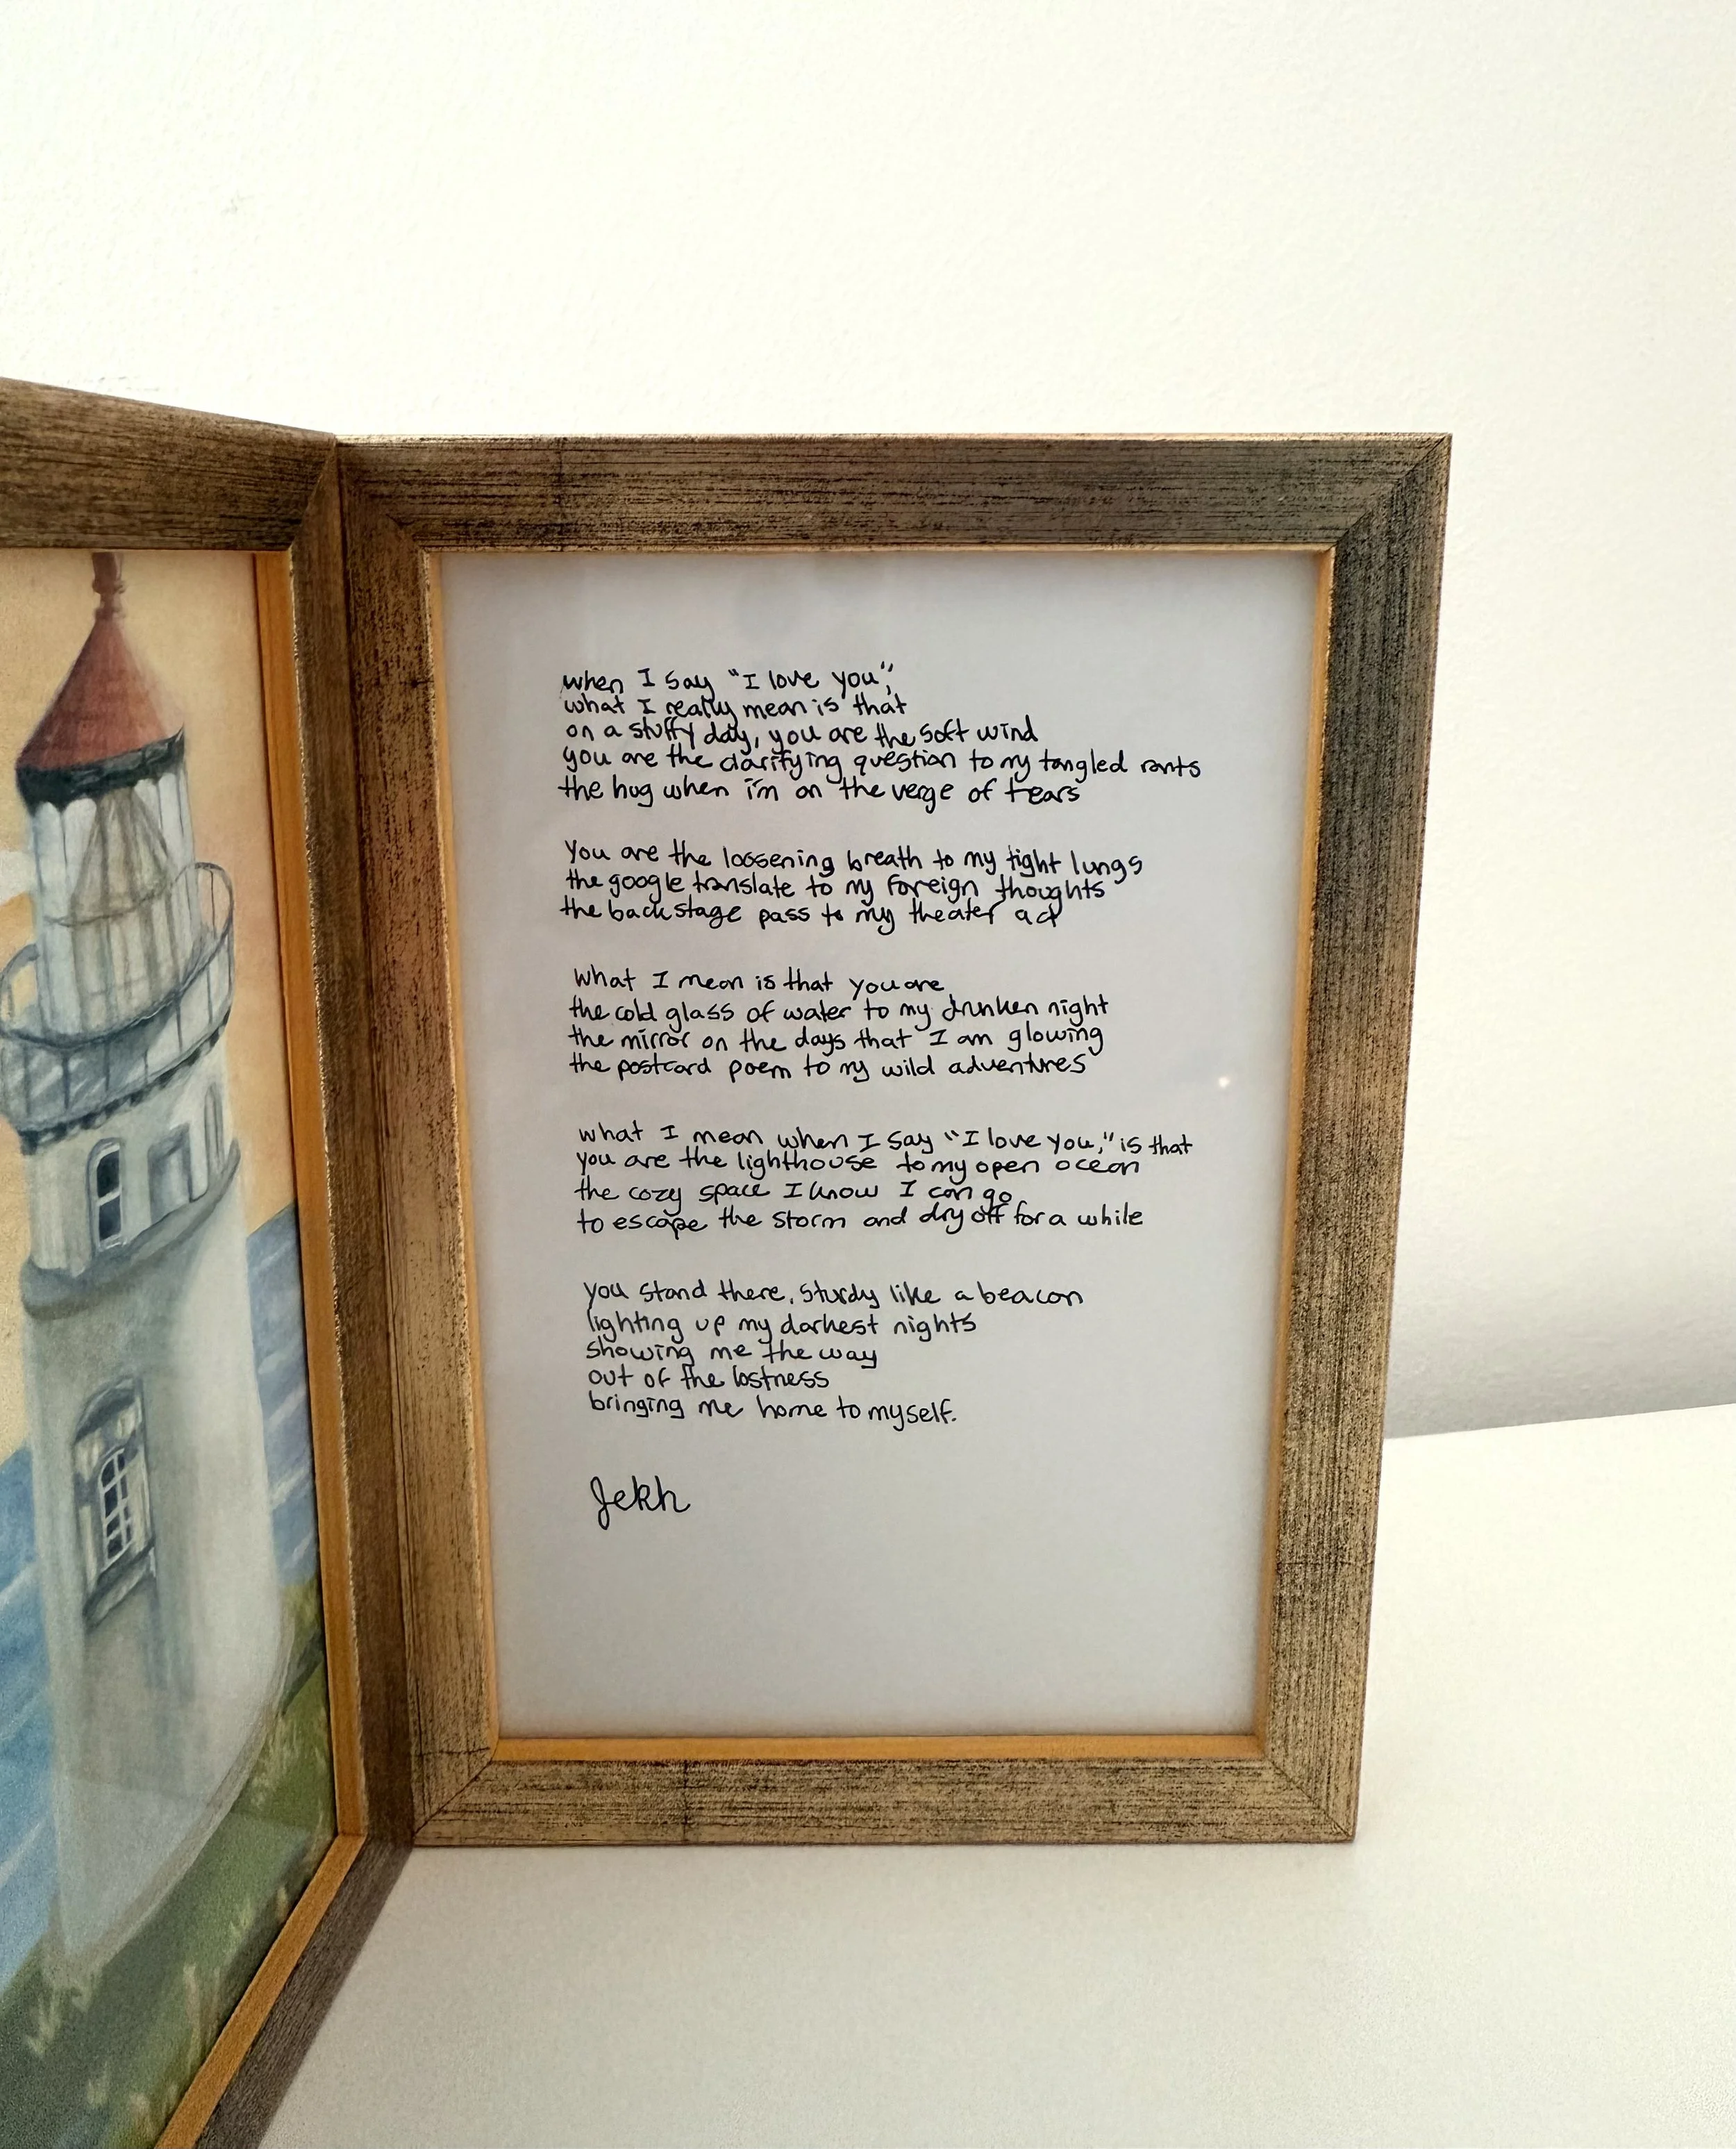 when I say "I love you",
what I really mean is that
on a stuffy day, you are the soft wind
you are the clarifying question to my tangled rants
the hug when i'm on the verge of tears
You are the loosening breath to my tight lungs
the google translate to my foreign thoughts
the backstage pass to my theater act
what I mean is that you are
the cold glass of water to my drunken night
the mirror on the days that I am glowing
the postcard poem to my wild adventures
what I mean when I say "I love you," is that
you are the lighthouse to my open ocean
the cozy space I know I can go
to escape the storm and dry off for a while
you stand there, sturdy like a beacon
lighting up my darkest nights
showing me the way
out of the lostness
bringing me home to myself.
Jekh